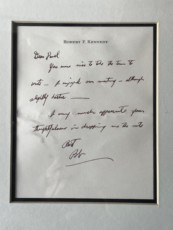 ROBERT F. KENNEDY
Dear
You were nice to take the time to
write – I enjoyed our meeting – although
slightly
I very much appreciate your
thoughtfulness in dropping me the note
Best
Bob